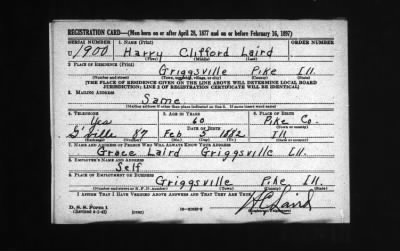 REGISTRATION CARD—(Men born on or after April 28, 1877 and on or before February 16, 1897)
SERIAL NUMBER 1. NAME (Print) ORDER NUMBER
U 1900 Harry Clifford Laird
(First) (Middle) (Last)
2. PLACE OF RESIDENCE (Print)
Griggsville Pike Ill.
(Number and street) (Town, township, village, or city) (County) (State)
[THE PLACE OF RESIDENCE GIVEN ON THE LINE ABOVE WILL DETERMINE LOCAL BOARD
JURISDICTION; LINE 2 OF REGISTRATION CERTIFICATE WILL BE IDENTICAL]
3. MAILING ADDRESS
Same
(Mailing address if other than place indicated on line 2. If same insert word same)
4. TELEPHONE 5. AGE IN YEARS 6. PLACE OF BIRTH
Yes 60 Pike Co.
DATE OF BIRTH (Town or county)
G'ville 87 Feb 5 1882 Ill
(Exchange) (Number) (Mo.) (Day) (Yr.) (State or country)
7. NAME AND ADDRESS OF PERSON WHO WILL ALWAYS KNOW YOUR ADDRESS
Grace Laird Griggsville Ill.
8. EMPLOYER'S NAME AND ADDRESS
Self
9. PLACE OF EMPLOYMENT OR BUSINESS
Griggsville Pike Ill
(Number and street or R. F. D. number) (Town) (County) (State)
I AFFIRM THAT I HAVE VERIFIED ABOVE ANSWERS AND THAT THEY ARE TRUE.
D. S. S. Form 1
(Revised 4-1-42) (over)
H C Laird
(Registrant's signature)